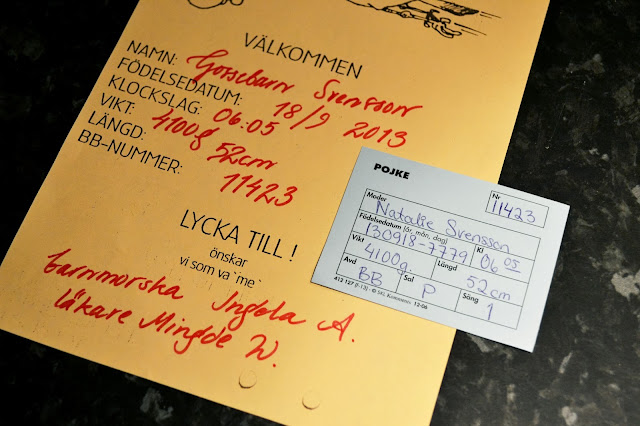 VÄLKOMMEN
NAMN: Gossebarn Svensson
FÖDELSEDATUM: 18/9 2013
KLOCKSLAG: 06.05
VIKT: 4100g
LÄNGD: 52cm
BB-NUMMER: 11423
LYCKA TILL!
önskar
vi som va `me´
barnmorska Ingela A.
läkare Mingde W.
POJKE
Nr
11423
Moder
Natalie Svensson
Födelsedatum (år, mån, dag) Kl
130918-7779 06 05
Vikt Längd
4100g. 52cm
Avd Sal Säng
BB P 1
412 127 (1-13) - © SKL Kommentus 12-06